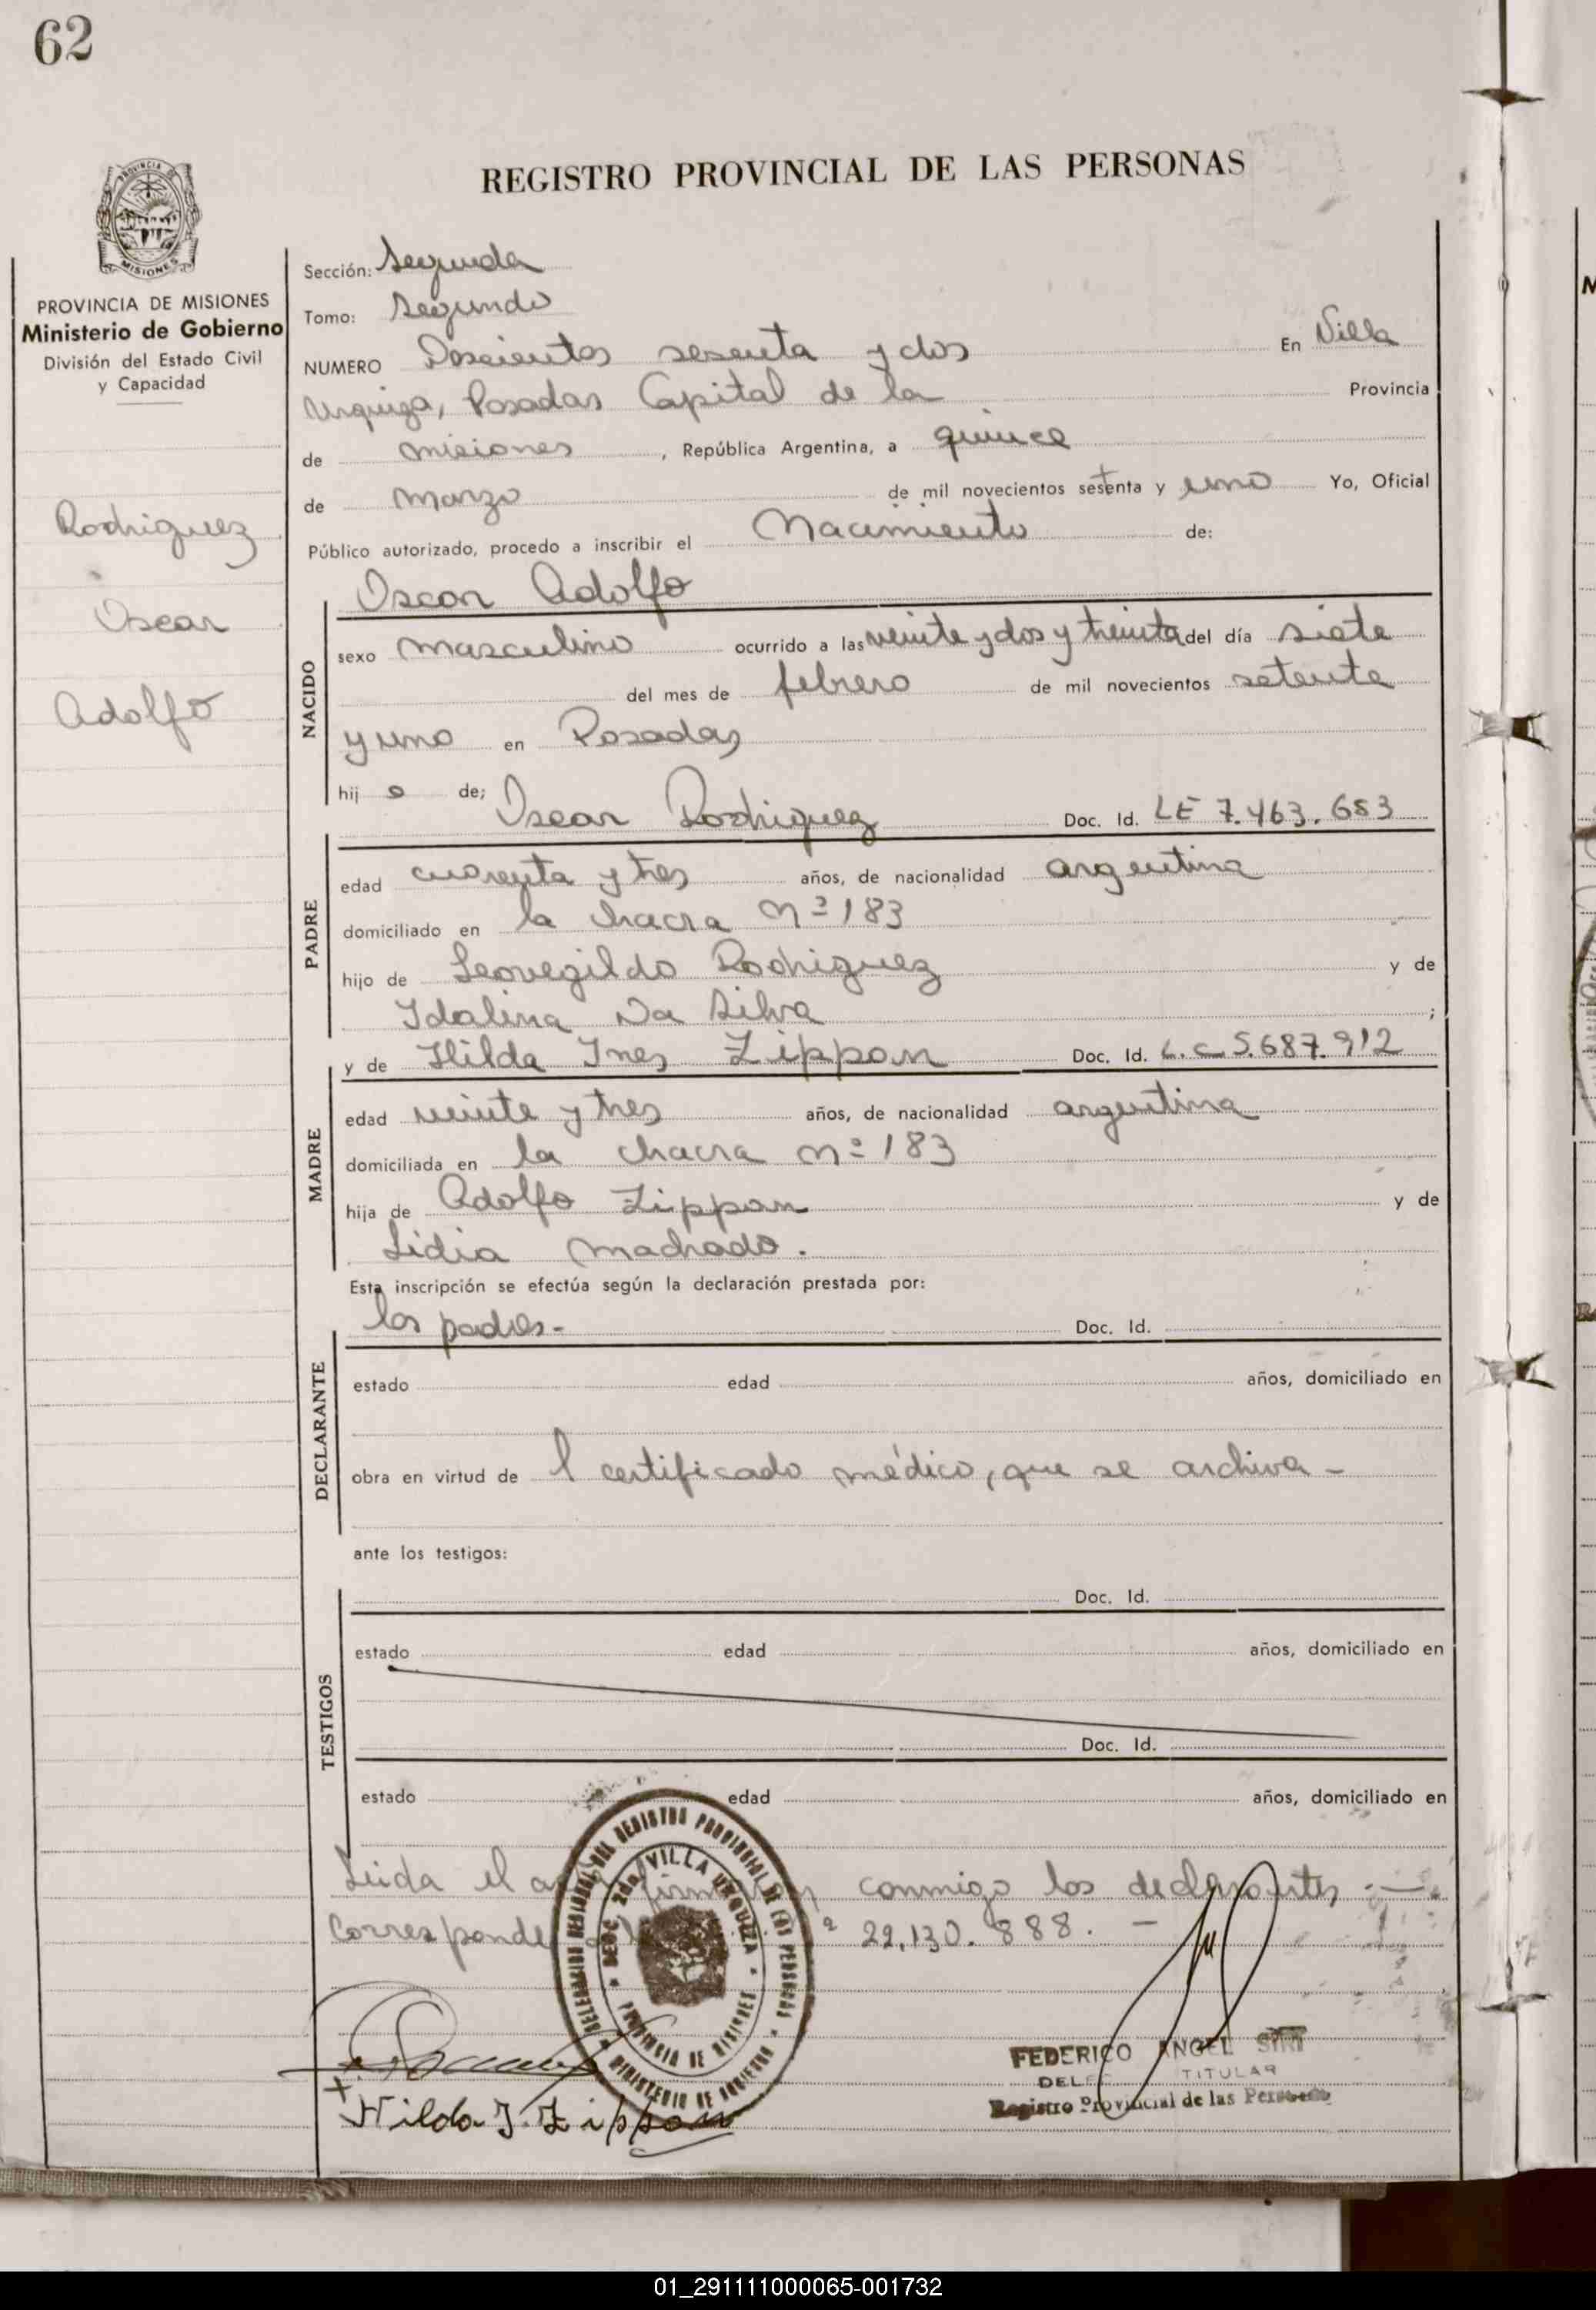 62
PROVINCIA DE MISIONES
Ministerio de Gobierno
División del Estado Civil
y Capacidad
Rodriguez
Oscar
Adolfo
REGISTRO PROVINCIAL DE LAS PERSONAS
Sección: Segunda
Tomo: Segundo
NUMERO Doscientos sesenta y dos En Villa
Urquiza, Posadas Capital de la Provincia
de misiones, República Argentina, a quince
de marzo de mil novecientos setenta y uno Yo, Oficial
Público autorizado, procedo a inscribir el Nacimiento de:
Oscar Adolfo
NACIDO
sexo masculino ocurrido a las veinte y dos y treinta del día siete
del mes de febrero de mil novecientos setenta
y uno en Posadas
hij o de; Oscar Rodriguez Doc. Id. LE 7.463.653
PADRE
edad cuarenta y tres años, de nacionalidad argentina
domiciliado en la chacra nº 183
hijo de Leovegildo Rodriguez y de
Idalina Da Silva ;
y de Hilda Ines Zippan Doc. Id. L.C 5.687.912
MADRE
edad veinte y tres años, de nacionalidad argentina
domiciliada en la chacra nº 183
hija de Adolfo Zippan y de
Lidia Machado.
Esta inscripción se efectúa según la declaración prestada por:
los padres- Doc. Id.
DECLARANTE
estado edad años, domiciliado en
obra en virtud de l certificado médico, que se archiva -
ante los testigos:
Doc. Id.
TESTIGOS
estado edad años, domiciliado en
Doc. Id.
estado edad años, domiciliado en
Leida el conmigo los declarantes.-
Corresponde 22.130.888. -
DELEGACION REGIONAL DEL REGISTRO PROVINCIAL DE LAS PERSONAS
SECC. 2da. VILLA URQUIZA
PROVINCIA DE MISIONES
MINISTERIO DE GOBIERNO
Hilda I. Zippan
FEDERICO ANGEL
TITULAR
Registro Provincial de las Personas
01_291111000065-001732